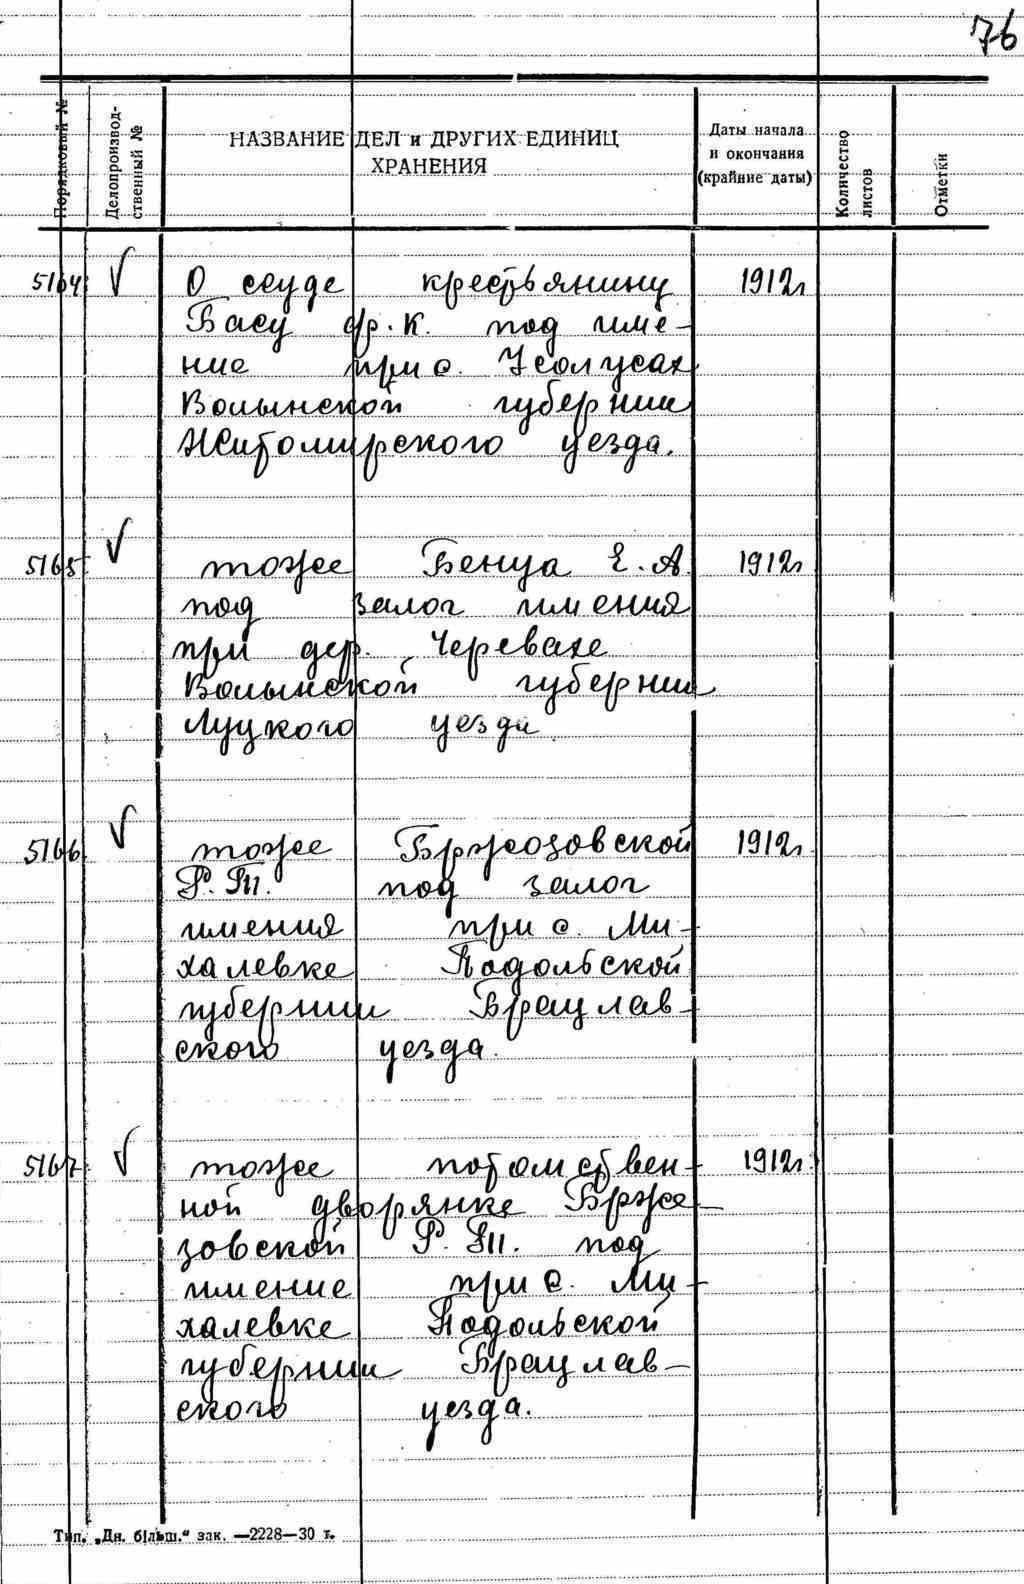 76
Порядковый №
Делопроизвод-
ственный №
НАЗВАНИЕ ДЕЛ и ДРУГИХ ЕДИНИЦ
ХРАНЕНИЯ
Даты начала
и окончания
(крайние даты)
Количество
листов
Отметки
5164 √ О ссуде крестьянину 1912г
Басу Ф.К. под име-
ние при с. Усолусах
Волынской губернии
Житомирского уезда.
5165 √ тоже Бенуа Е.А. 1912г
под залог имения
при дер. Черевахе
Волынской губернии
Луцкого уезда
5166 √ тоже Бржозовской 1912г.
Р. Ш. под залог
имения при с. Ми-
халевке Подольской
губернии Брацлав-
ского уезда.
5167 √ тоже потомствен- 1912г.
ной дворянке Брже-
зовской Р. Ш. под
имение при с. Ми-
халевке Подольской
губернии Брацлав-
ского уезда.
Тип. „Дн. більш.“ зак. —2228—30 т.